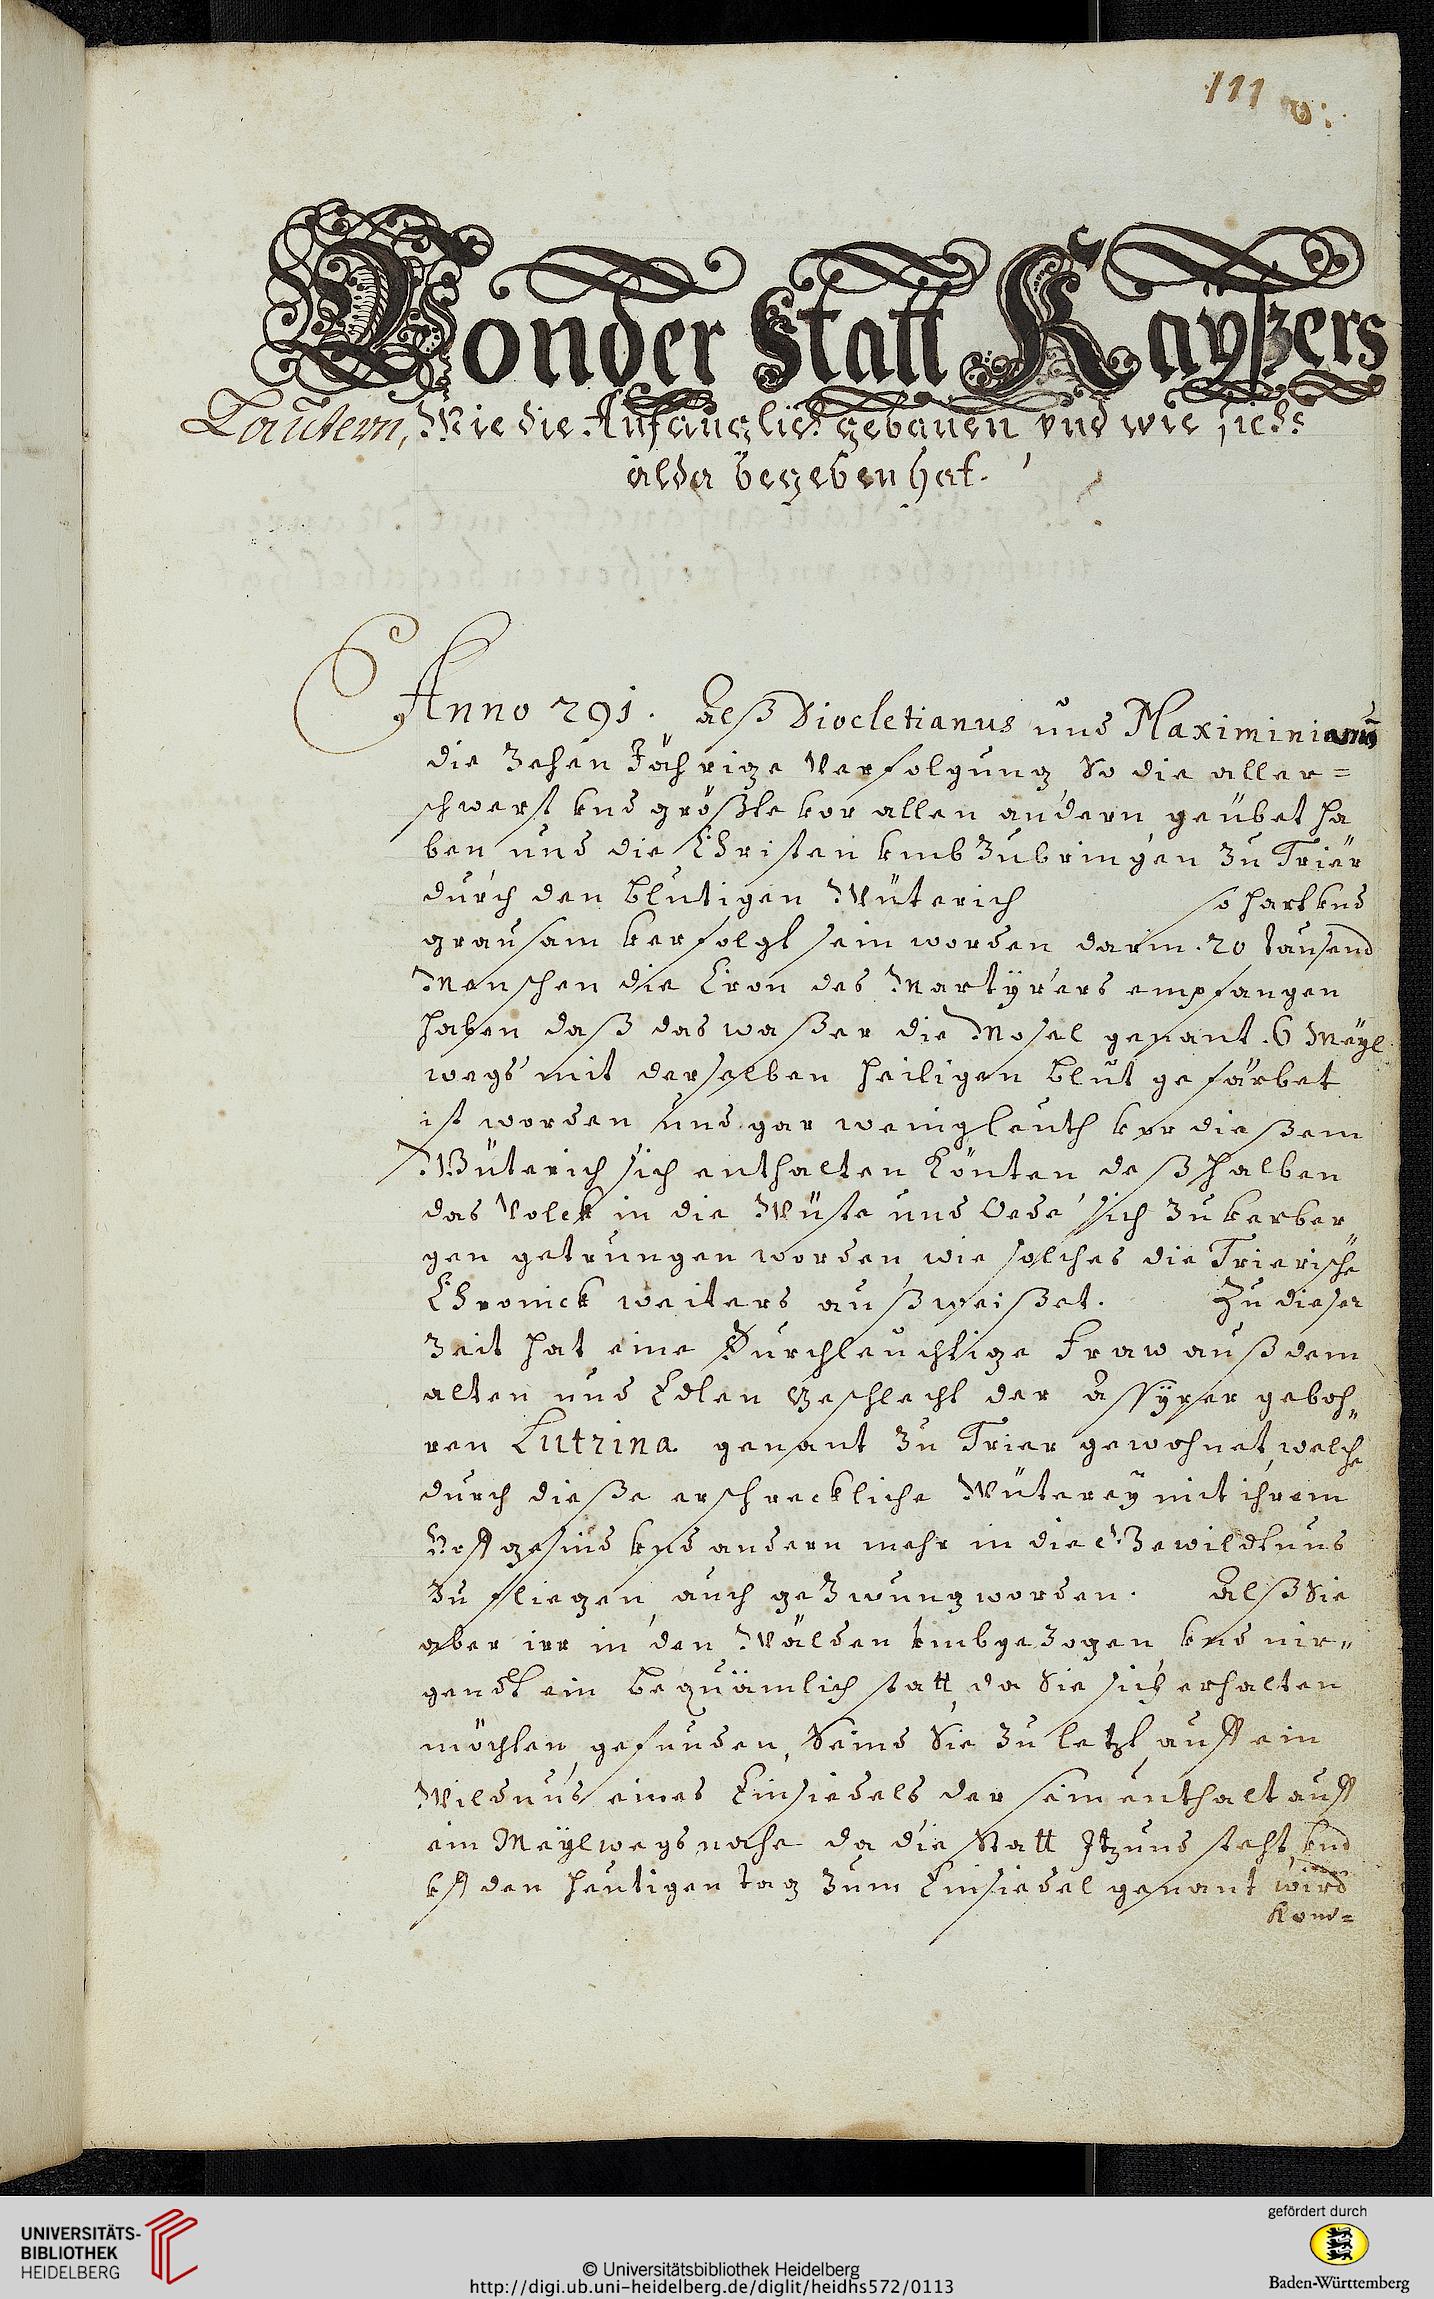 111
Von der Statt Kayßers
Lautern, Wie die Anfänglich gebauen vnd wie sichs
alda begeben hat.
Anno 291. Alß Diocletianus und Maximinianus
die Zehen Jährige Verfolgung So die aller=
schwerst vnd größte vor allen andern geübet ha
ben und die Christen vmb Zubringen Zu Trier
durch den blutigen Wüterich so hart vnd
grausam verfolgt sein worden darin . 20 tausend
Menschen die Cron des Martyrers empfangen
haben daß das waßer die Mosel genant . 6 Meyl
wegs mit derselben heiligen blut gefärbet
ist worden und gar wenig leuth vor dießem
Wüterich sich enthalten könten deßhalben
das Volck in die Wüste und Oede sich Zu verber„
gen getrungen worden wie solches die Trierische
Chronick weiters außweißet. Zu dieser
Zeit hat eine Durchleuchtige Fraw auß dem
alten und Edlen Geschlecht der Assyrer geboh„
ren Lutrina genant Zu Trier gewohnet, welche
durch dieße erschreckliche Wüterey mit ihrem
Hoffgesind vnd andern mehr in die Gewildtnus
Zu fliegen auch geZwung worden. Alß Sie
aber irr in den Wälden vmbgezogen vnd nir„
gendt ein bequämlich statt, da Sie sich erhalten
möchten, gefunden, Seind Sie Zu letzt auff ein
Wildnus eines Einsiedels der sein enthalt auff
ein Meylwegs nahe da die Statt Jtzund steht, vnd
vff den heutigen tag Zum Einsiedel genant wird
Kom=
UNIVERSITÄTS-
BIBLIOTHEK
HEIDELBERG
© Universitätsbibliothek Heidelberg
http://digi.ub.uni-heidelberg.de/diglit/heidhs572/0113
gefördert durch
Baden-Württemberg